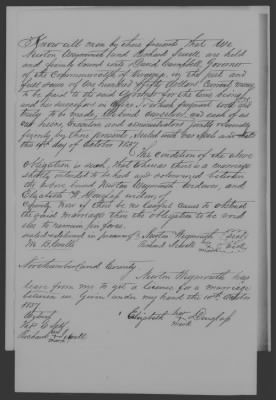 Know all men by these presents that We
Newton Weymouth and Richard Sutett are held
and firmly bound unto David Campbell, Governor
of the Commonwealth of Virginia, in the just and
full sum of one hundred & fifty dollars Current money
to be paid to the said Governor for the time being
and his successors in office, to which payment well and
truly to be made, We bind ourselves, and each of us
our heirs, executors and administrators jointly & severally
firmly by these presents, Sealed with our Seals and
this 10th day of October 1837.
The Condition of the above
obligation is such, that whereas there is a marriage
shortly intended to be had and solemnized between
the above bound Newton Weymouth widower, and
Elizabeth Douglas widow, of
County, Now if there be no lawful cause to obstruct
the said marriage then the obligation to be void
else to remain in force.
sealed & delivered in presence of Newton Weymouth seal
Richard his mark seal
Northumberland County
Newton Weymouth has
leave from me to get a license for a marriage
between us Given under my hand the 10th October
1837.
Elizabeth her mark Douglas
Richard his mark